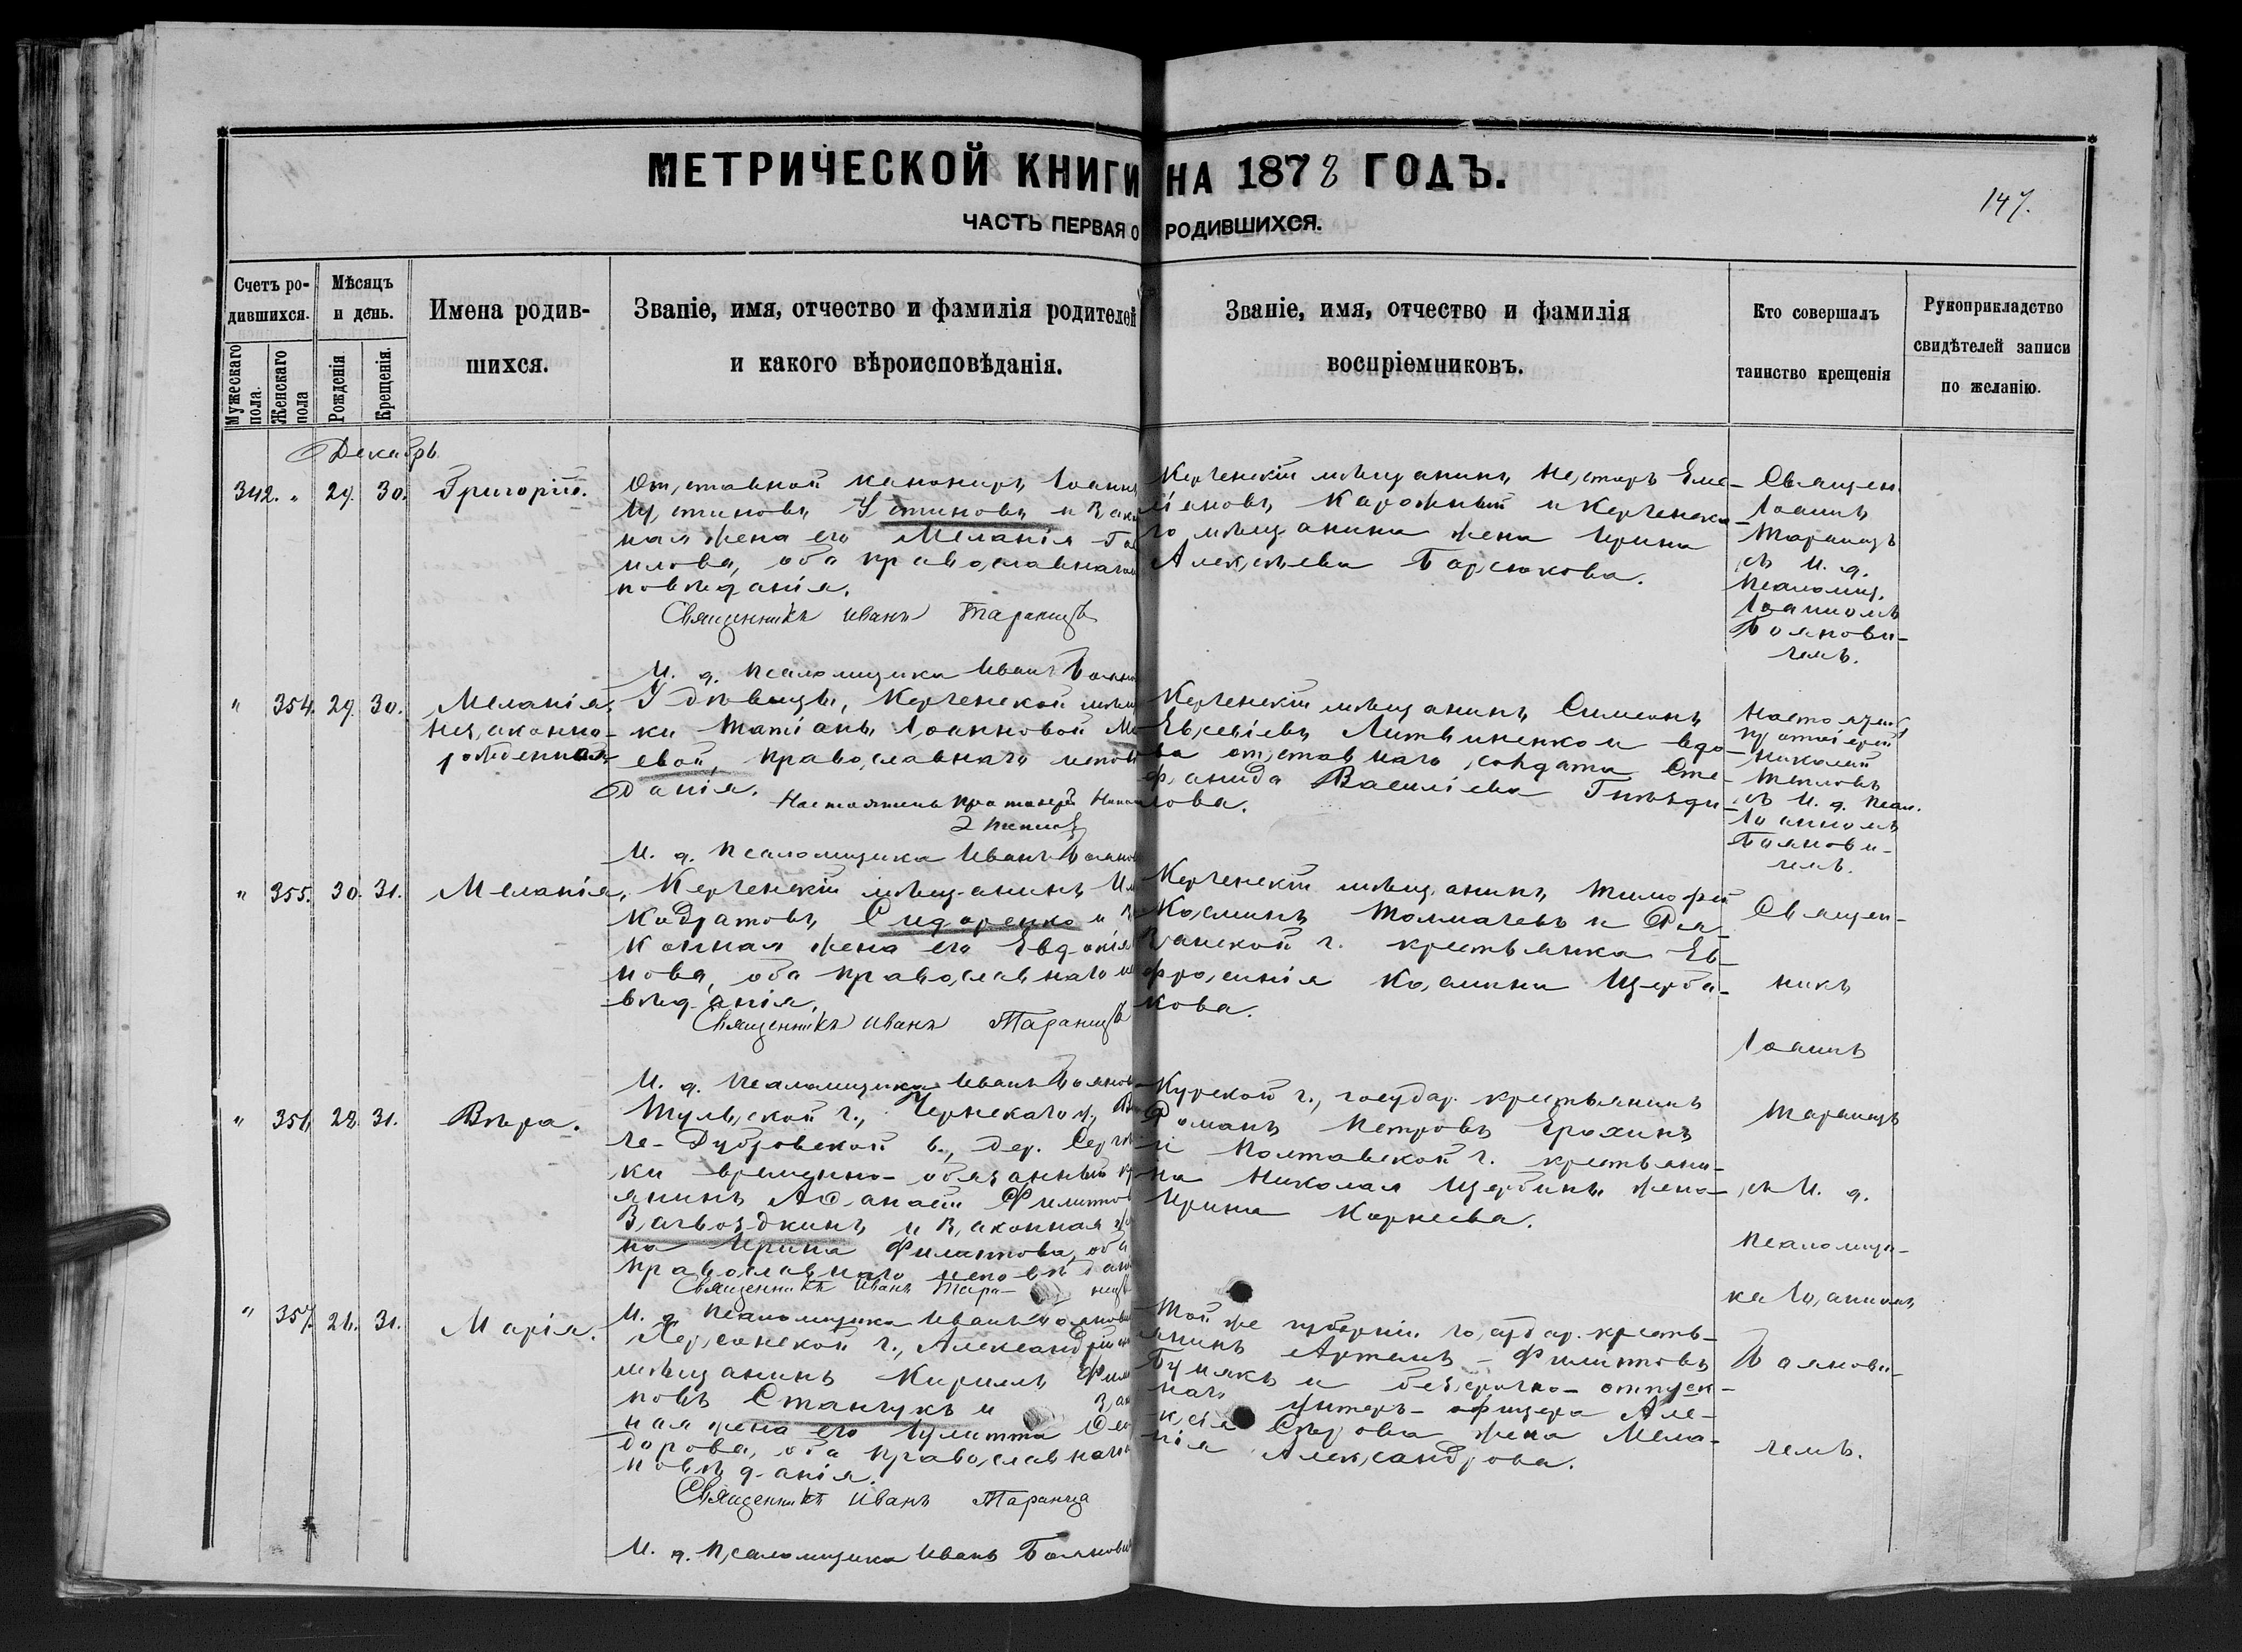 МЕТРИЧЕСКОЙ КНИГИ НА 1878 ГОДЪ.
147.
ЧАСТЬ ПЕРВАЯ О РОДИВШИХСЯ.
Счетъ ро-
дившихся.
Мужескаго
пола.
Женскаго
пола
Мѣсяцъ
и день.
Рожденія
Крещенія.
Имена родив-
шихся.
Званіе, имя, отчество и фамилія родителей
и какого вѣроисповѣданія.
Званіе, имя, отчество и фамилія
воспріемниковъ.
Кто совершалъ
таинство крещенія
Рукоприкладство
свидѣтелей записи
по желанію.
Декабрь
342. " 29. 30.
Григорій.
Отставной канониръ Іоаннъ
Іустиновъ Устиновъ и зако
ная жена его Меланія Га
илова, оба православнаго
повѣданія.
Священникъ Иванъ Таранецъ
И. д. псаломщика Иванъ
Керченскій мѣщанинъ Несторъ Еме-
ліановъ Карожный и Керченска-
го мѣщанина жена Ирина
Алексѣева Барсюкова.
Священ.
Іоаннъ
Таранецъ
съ И. д.
псаломщ.
Іоанномъ
Боянови-
чемъ.
" 354. 29. 30.
Меланія.
Незаконно-
рожденная
У дѣвицы, Керченской мѣщ
ки Татіаны Іоанновой
евой, православнаго испов
данія.
Настоятель протоіерей
И. д. псаломщика Иванъ Боянов
Керченскій мѣщанинъ Симеонъ
Евсевіевъ Литвиненко и вдо-
ва отставнаго солдата Сте-
фанида Василіева Гнѣзди-
лова.
Настоятель
протоіерей
Николай
съ И. д. псал.
Іоанномъ
Боянови-
чемъ.
" 355. 30. 31.
Меланія.
Керченскій мѣщанинъ
Кодратовъ Сидоренко и
конная жена его Евдокія
нова, оба православнаго
вѣданія.
Священникъ Иванъ Таранецъ
И. д. псаломщика Иванъ Боянов
Керченскій мѣщанинъ Тимофей
Косминъ Толмачевъ и Ря-
занской г. крестьянка Ев-
фросинія Космина Щерба-
кова.
Священ-
никъ
Іоаннъ
Таранецъ
съ И. д.
псаломщи-
ка Іоанномъ
Боянови-
чемъ.
" 356 28. 31.
Вѣра.
Тульской г., Чернскаго у.,
ге-Дубровской в., дер. Серг
ки временно-обязанный кр
янинъ Афанасій Филиппов
Загвоздкинъ и законная же
на Ирина Филиппова, оба
православнаго исповѣдан
Священникъ Иванъ Таранецъ
И. д. псаломщика Иванъ Боянов
Курской г., государ. крестьянинъ
Романъ Петровъ Ерохинъ
и Полтавской г. крестьяни-
на Николая Щербины жена
Ирина Корнеева.
" 357. 26. 31.
Марія.
Херсонской г., Александрій
мѣщанинъ Кириллъ Фил
повъ Станчукъ и зак
ная жена его Іулитта Фео
дорова, оба православнаго
повѣданія.
Священникъ Иванъ Таранецъ
И. д. псаломщика Иванъ Боянови
Той же губерніи государ. кресть-
янинъ Артемъ Филипповъ
Бунякъ и безсрочно-отпуск-
наго унтеръ-офицера Але-
ксія Сѣрова жена Мела-
нія Александрова.